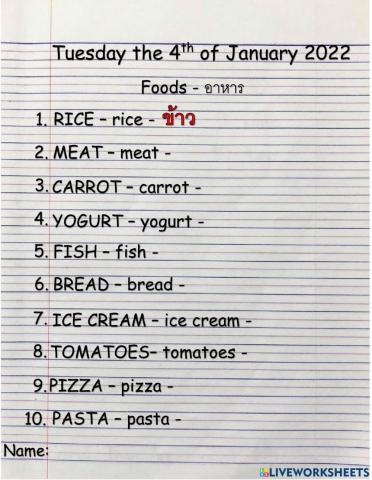 Tuesday the 4th of January 2022
Foods - อาหาร
1. RICE – rice - ข้าว
2. MEAT – meat -
3. CARROT – carrot -
4. YOGURT – yogurt -
5. FISH – fish -
6. BREAD – bread -
7. ICE CREAM – ice cream -
8. TOMATOES– tomatoes -
9. PIZZA – pizza -
10. PASTA – pasta -
Name:
LIVEWORKSHEETS